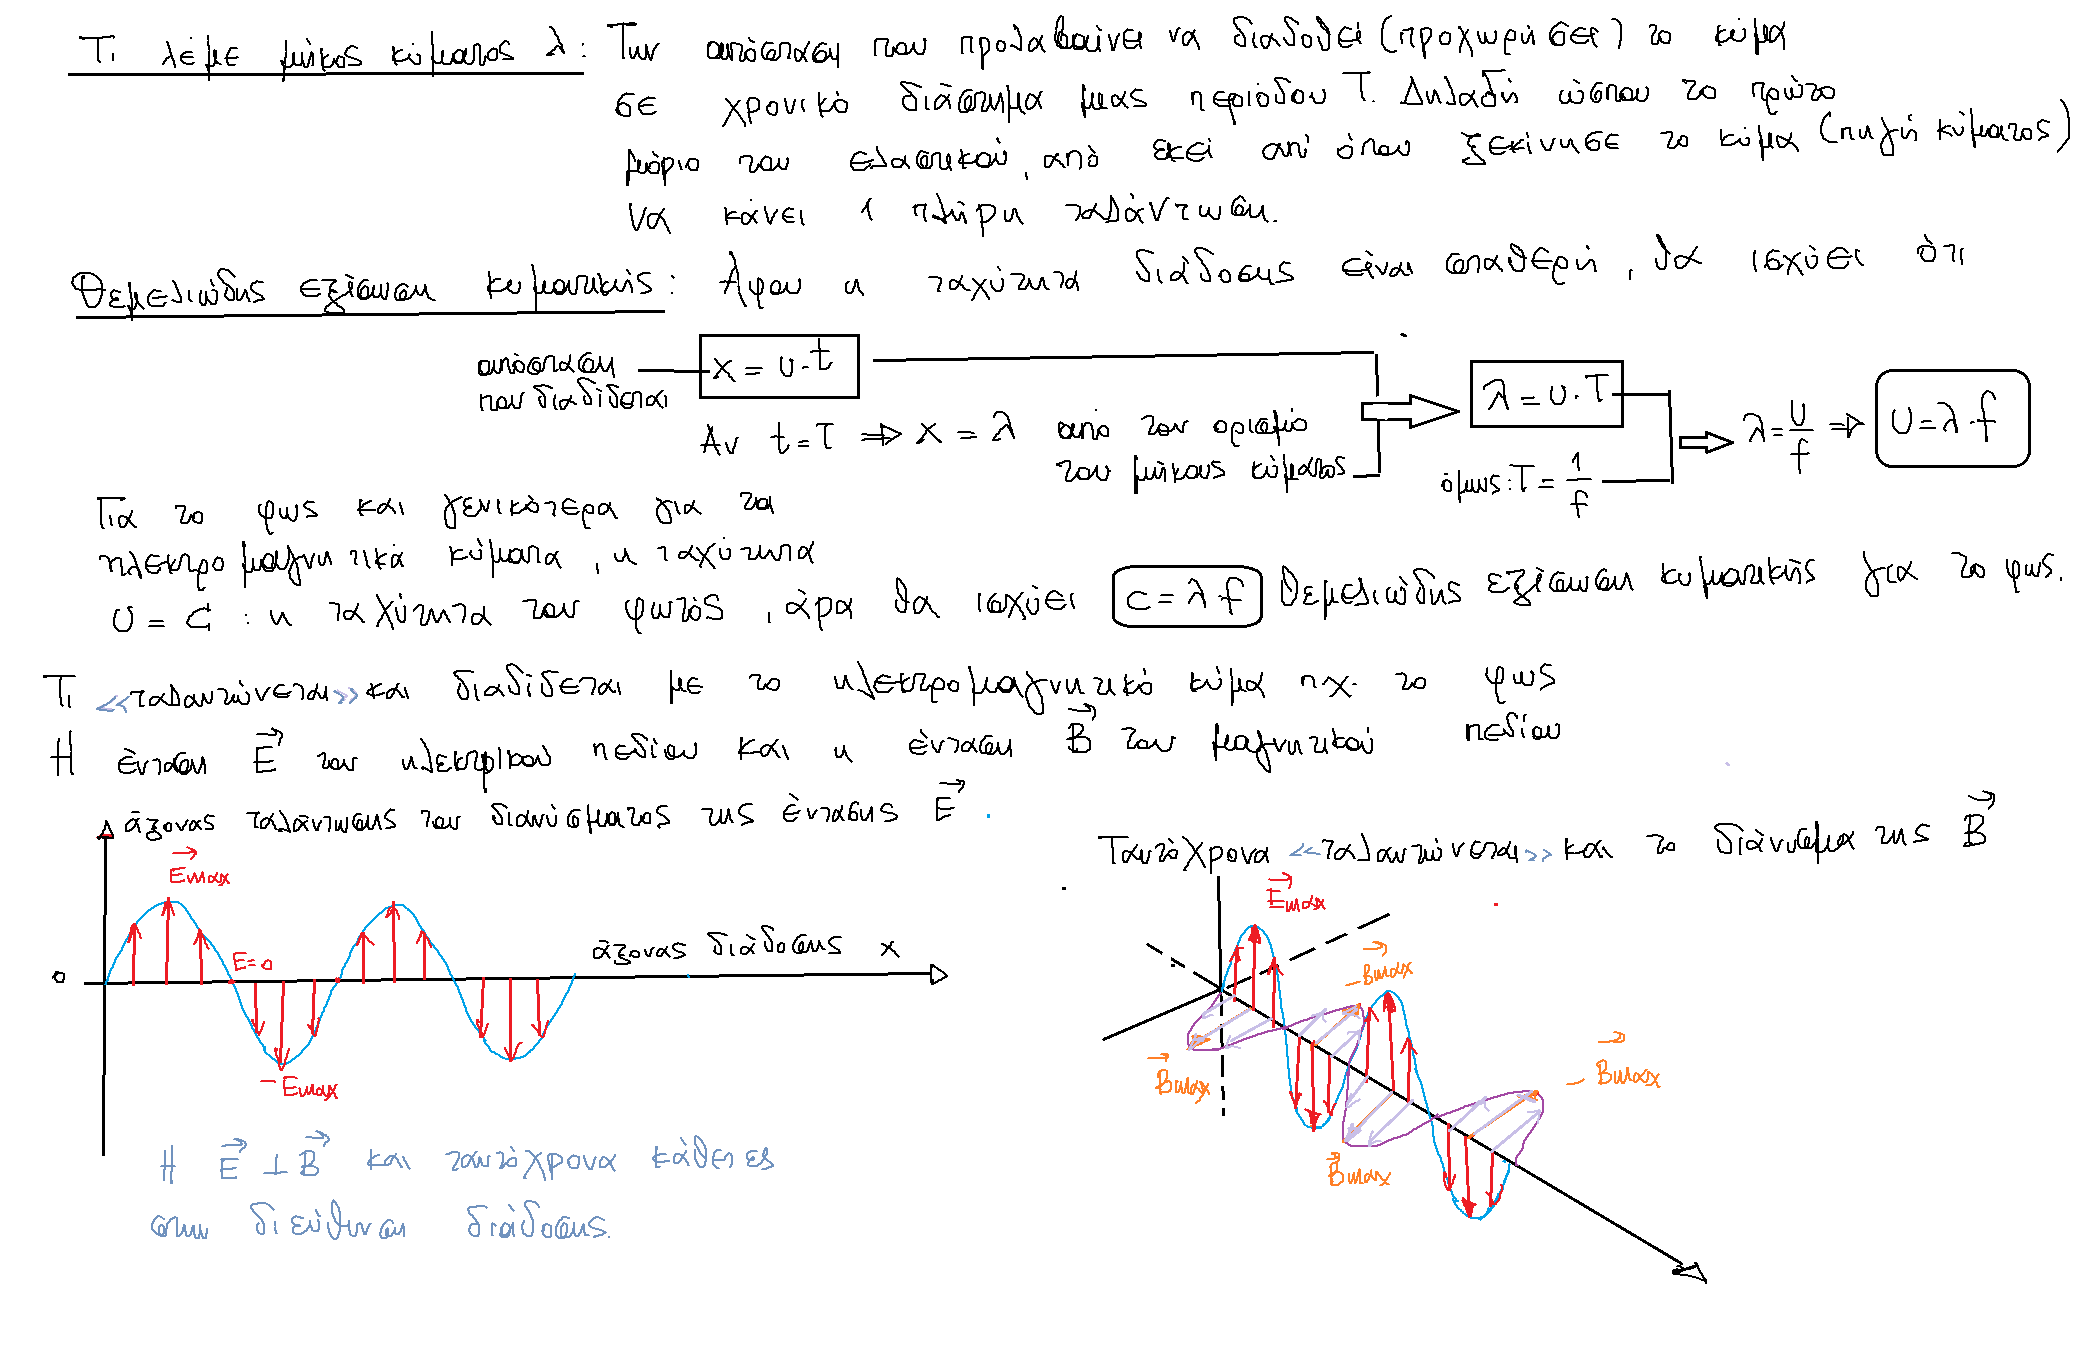 Τι λέμε μήκος κύματος λ: Την απόσταση που προλαβαίνει να διαδοθεί (προχωρήσει) το κύμα
σε χρονικό διάστημα μιας περιόδου T. Δηλαδή ώσπου το πρώτο
μόριο του ελαστικού, από εκεί απ' όπου ξεκίνησε το κύμα (πηγή κύματος)
να κάνει 1 πλήρη ταλάντωση.
Θεμελιώδης εξίσωση κυματικής: Αφου η ταχύτητα διάδοσης είναι σταθερή, θα ισχύει ότι
απόσταση
που διαδίδεται
x = υ·t
Αν t=T ⇒ x = λ από τον ορισμό
του μήκους κύματος
λ = υ·T
όμως: T = 1/f
λ = υ/f ⇒ υ=λ·f
Για το φως και γενικότερα για τα
ηλεκτρομαγνητικά κύματα, η ταχύτητα
υ = c : η ταχύτητα του φωτός, άρα θα ισχύει c = λ·f θεμελιώδης εξίσωση κυματικής για το φως.
Τι <<ταλαντώνεται>> και διαδίδεται με το ηλεκτρομαγνητικό κύμα π.χ. το φως
Η ένταση E⃗ του ηλεκτρικού πεδίου και η ένταση B⃗ του μαγνητικού πεδίου
άξονας ταλάντωσης του διανύσματος της έντασης E⃗.
E⃗max
E=0
0
άξονας διάδοσης x
-Emax
Η E⃗ ⊥ B⃗ και ταυτόχρονα κάθετες
στην διεύθυνση διάδοσης.
Ταυτόχρονα <<ταλαντώνεται>> και το διάνυσμα της B⃗
E⃗max
-B⃗max
B⃗max
-B⃗max
B⃗max